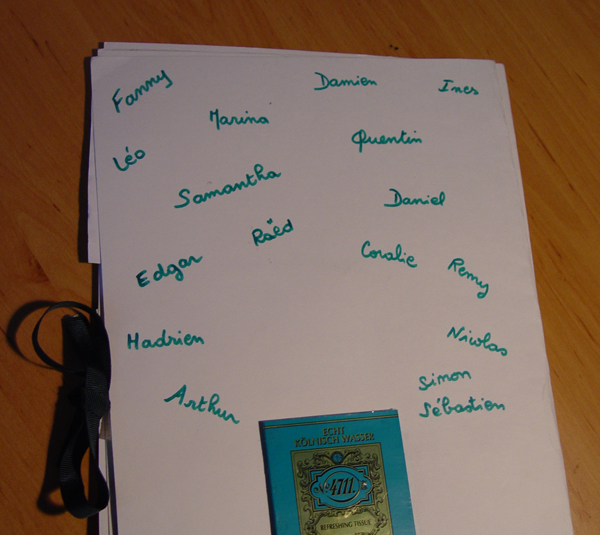 Fanny
Damien
Ines
Marina
Quentin
Léo
Samantha
Daniel
Raëd
Coralie
Remy
Edgar
Hadrien
Nicolas
Simon
Arthur
Sébastien
ECHT
KÖLNISCH WASSER
No 4711.
REFRESHING TISSUE